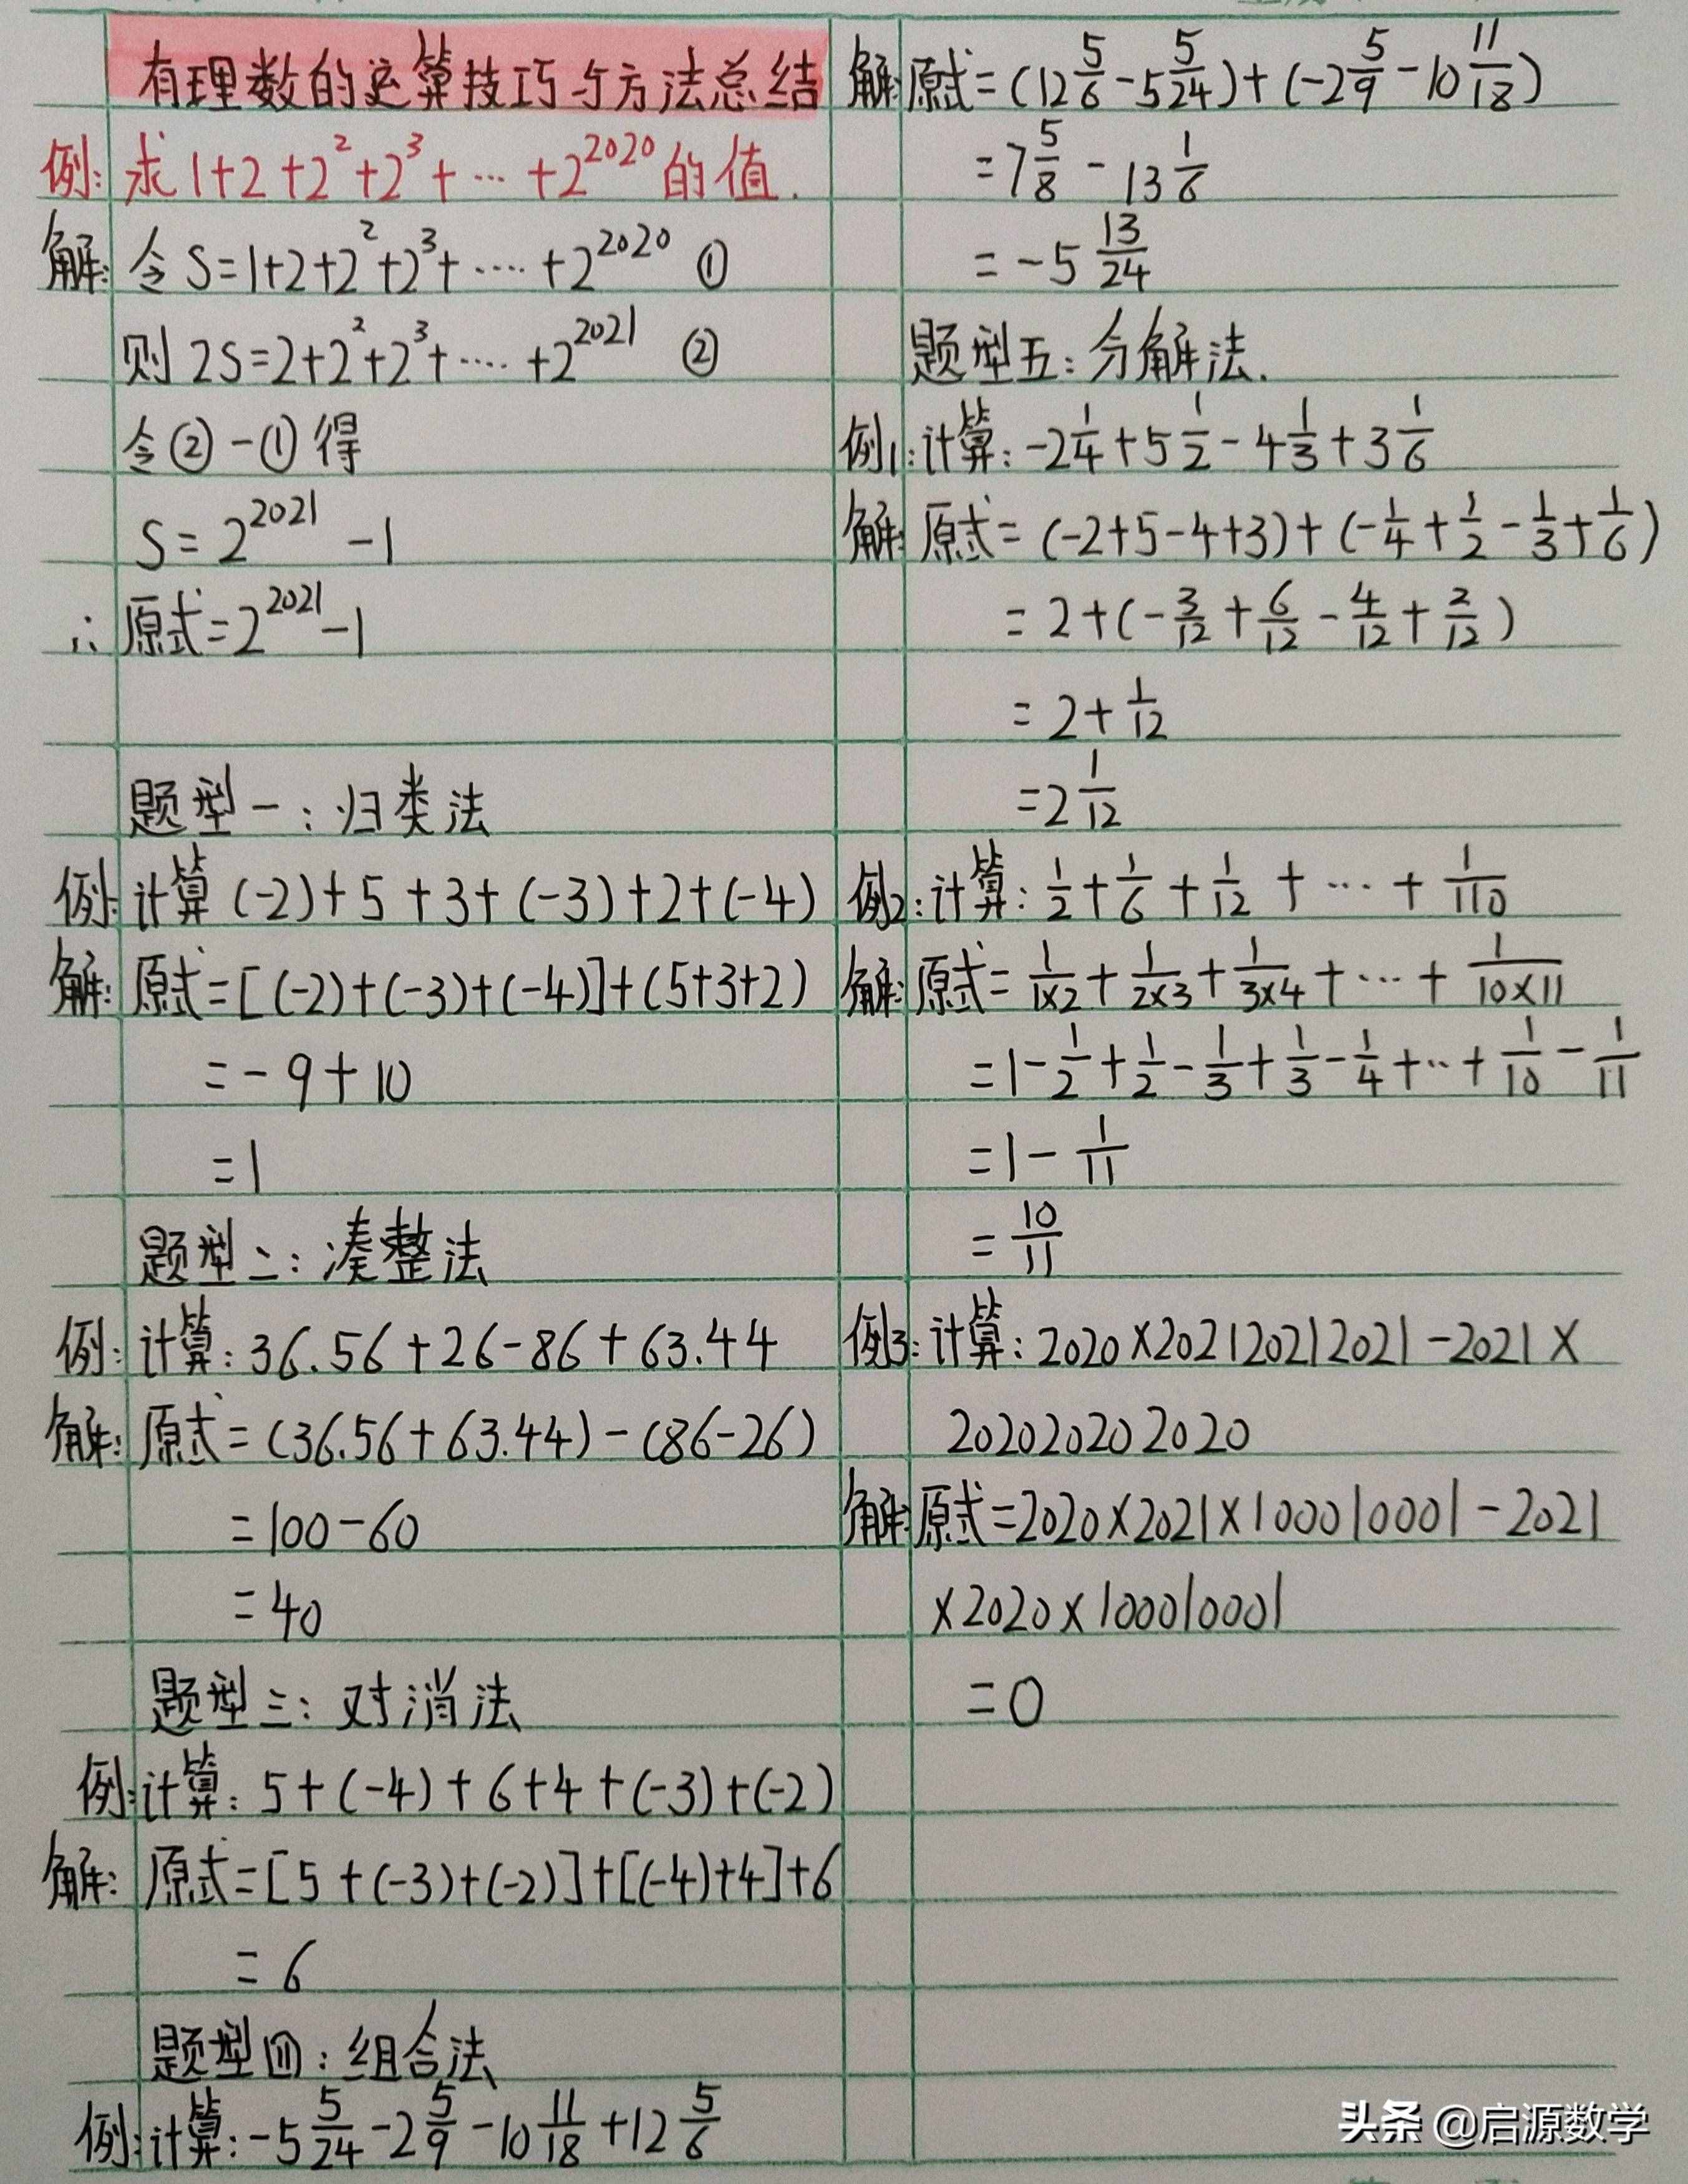 有理数的运算技巧与方法总结
例: 求1+2+2²+2³+…+2²⁰²⁰的值.
解: 令S=1+2+2²+2³+……+2²⁰²⁰ ①
则2S=2+2²+2³+……+2²⁰²¹ ②
令②-①得
S=2²⁰²¹-1
∴原式=2²⁰²¹-1
题型一:归类法
例:计算(-2)+5+3+(-3)+2+(-4)
解:原式=[(-2)+(-3)+(-4)]+(5+3+2)
=-9+10
=1
题型二:凑整法
例:计算:36.56+26-86+63.44
解:原式=(36.56+63.44)-(86-26)
=100-60
=40
题型三:对消法
例:计算:5+(-4)+6+4+(-3)+(-2)
解:原式=[5+(-3)+(-2)]+[(-4)+4]+6
=6
题型四:组合法
例:计算:-5 5/24-2 5/9-10 11/18+12 5/6
解:原式=(12 5/6-5 5/24)+(-2 5/9-10 11/18)
=7 5/8-13 1/6
=-5 13/24
题型五:分解法.
例1:计算:-2 1/4+5 1/2-4 1/3+3 1/6
解:原式=(-2+5-4+3)+(-1/4+1/2-1/3+1/6)
=2+(-3/12+6/12-4/12+2/12)
=2+1/12
=2 1/12
例2:计算:1/2+1/6+1/12+…+1/110
解:原式=1/1×2+1/2×3+1/3×4+…+1/10×11
=1-1/2+1/2-1/3+1/3-1/4+…+1/10-1/11
=1-1/11
=10/11
例3:计算:2020×202120212021-2021×
202020202020
解:原式=2020×2021×100010001-2021
×2020×100010001
=0
头条 @启源数学